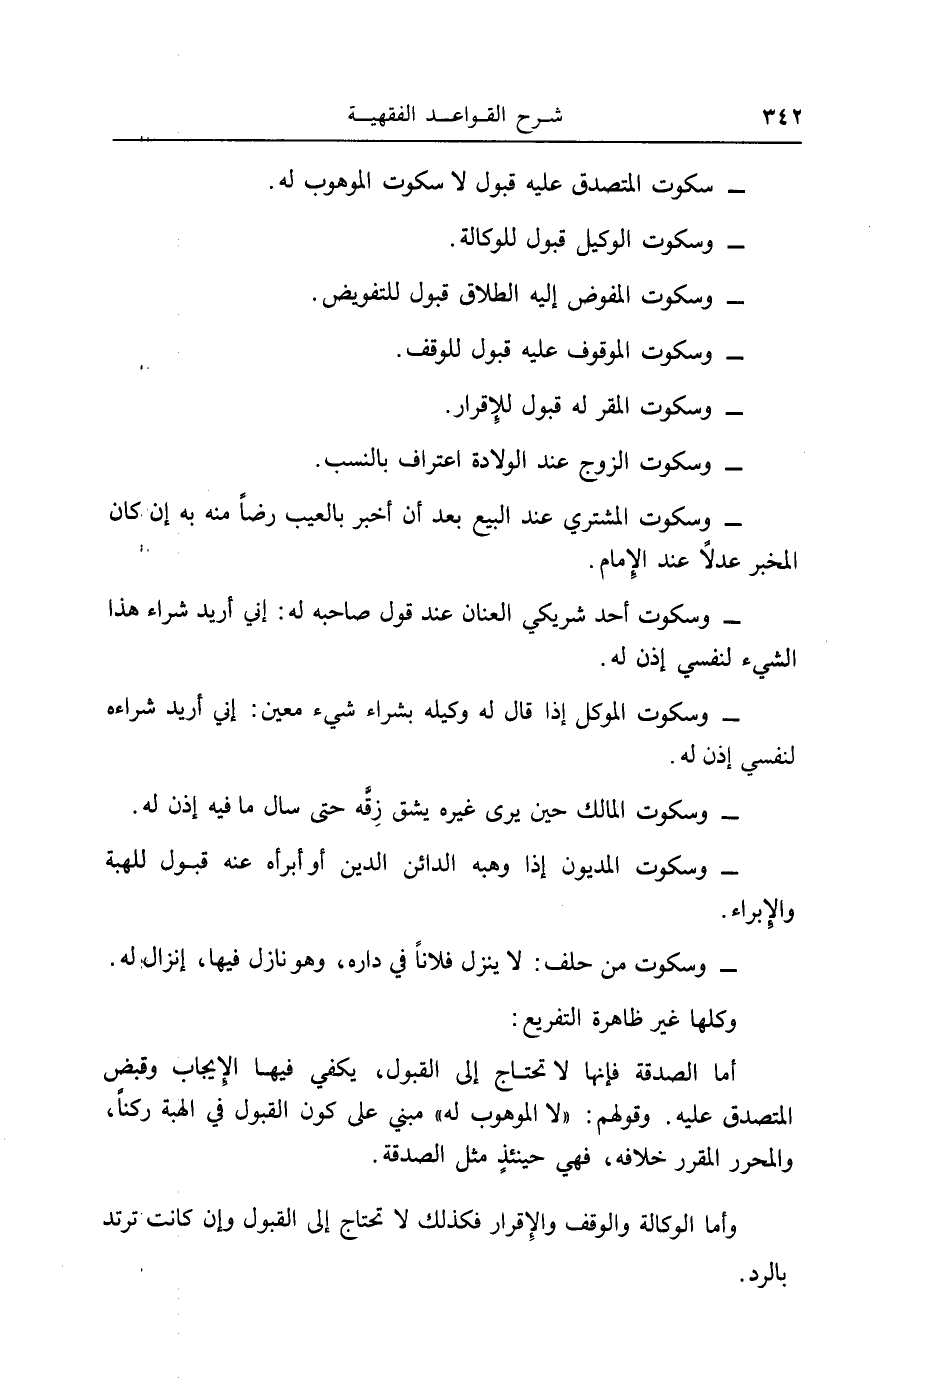 ٣٤٢ شرح القواعد الفقهية
ـ سكوت المتصدق عليه قبول لا سكوت الموهوب له.
ـ وسكوت الوكيل قبول للوكالة.
ـ وسكوت المفوض إليه الطلاق قبول للتفويض.
ـ وسكوت الموقوف عليه قبول للوقف.
ـ وسكوت المقر له قبول للإِقرار.
ـ وسكوت الزوج عند الولادة اعتراف بالنسب.
ـ وسكوت المشتري عند البيع بعد أن أخبر بالعيب رضاً منه به إن كان
المخبر عدلاً عند الإِمام.
ـ وسكوت أحد شريكي العنان عند قول صاحبه له: إني أريد شراء هذا
الشيء لنفسي إذن له.
ـ وسكوت الموكل إذا قال له وكيله بشراء شيء معين: إني أريد شراءه
لنفسي إذن له.
ـ وسكوت المالك حين يرى غيره يشق زِقَّه حتى سال ما فيه إذن له.
ـ وسكوت المديون إذا وهبه الدائن الدين أو أبرأه عنه قبول للهبة
والإِبراء.
ـ وسكوت من حلف: لا ينزل فلاناً في داره، وهو نازل فيها، إنزال له.
وكلها غير ظاهرة التفريع:
أما الصدقة فإنها لا تحتاج إلى القبول، يكفي فيها الإِيجاب وقبض
المتصدق عليه. وقولهم: «لا الموهوب له» مبني على كون القبول في الهبة ركناً،
والمحرر المقرر خلافه، فهي حينئذٍ مثل الصدقة.
وأما الوكالة والوقف والإِقرار فكذلك لا تحتاج إلى القبول وإن كانت ترتد
بالرد.